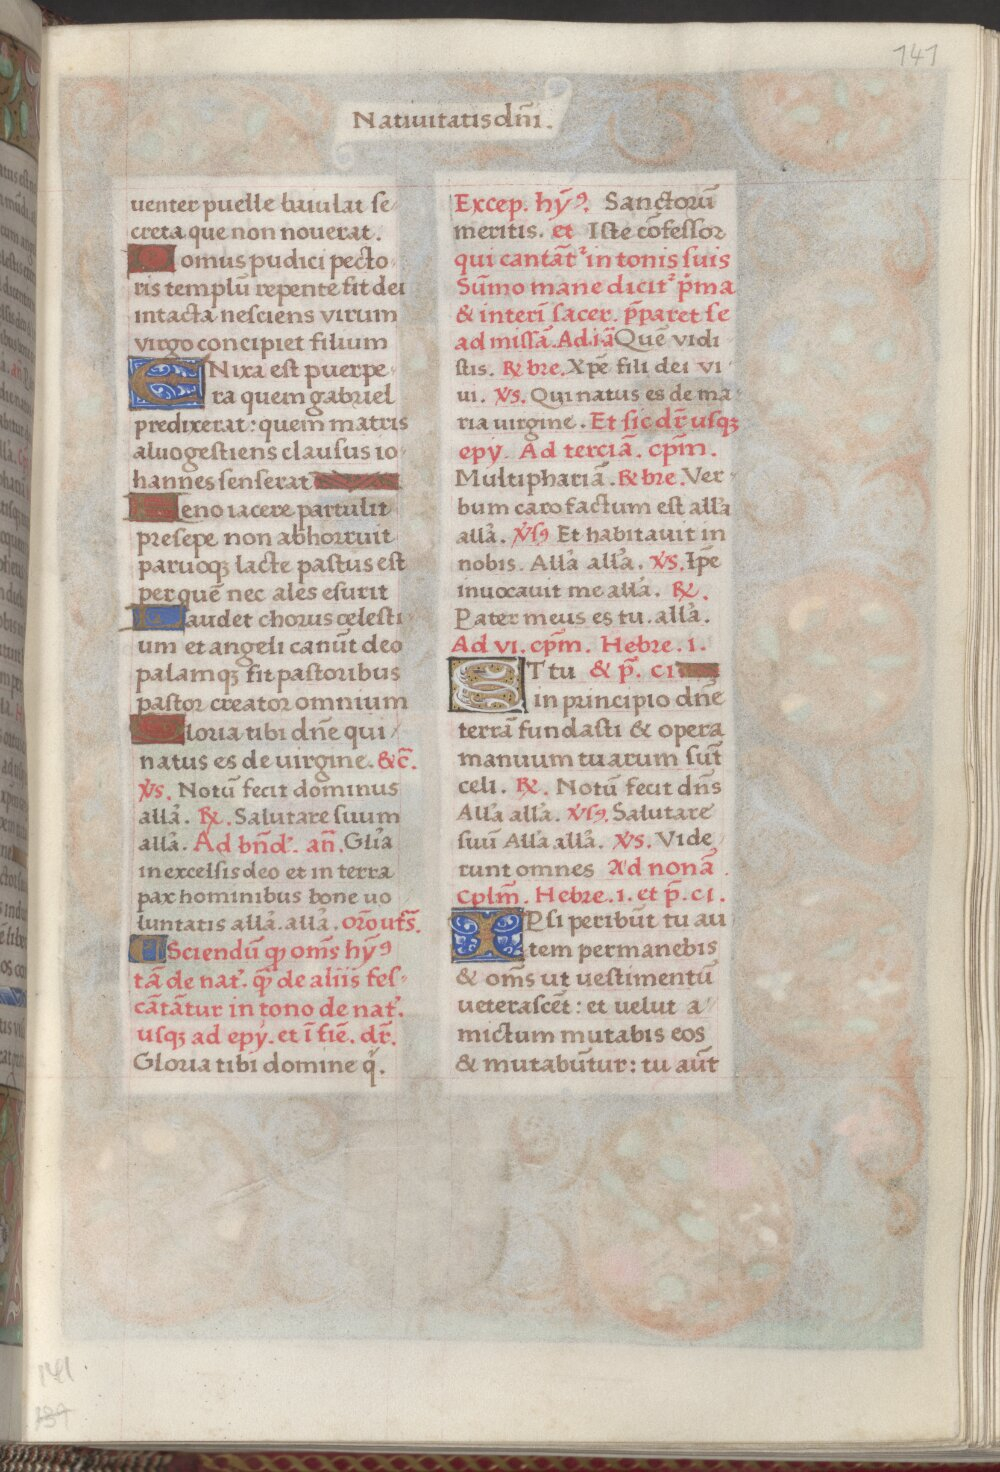 141
Natiuitatis dn̄i.
uenter puelle baiulat se
creta que non nouerat.
Domus pudici pecto
ris templū repente fit dei
intacta nesciens virum
virgo concipiet filium
ENixa est puerpe
ra quem gabriel
predixerat: quem matris
aluo gestiens clausus io
hannes senserat
Feno iacere partulit
presepe non abhorruit
paruoqꝫ lacte pastus est
per quē nec ales esurit
Laudet chorus celesti
um et angeli canūt deo
palamqꝫ fit pastoribus
pastor creator omnium
Gloria tibi dn̄e qui
natus es de uirgine. &c̄.
℣s. Notū fecit dominus
allā. ℞. Salutare suum
allā. Ad bn̄d'. an̄. Gl̄ia
in excelsis deo et in terra
pax hominibus bone uo
luntatis allā. allā. or̄o ut s̄.
Sciendū ꝙ om̄s hȳꝰ
tā de nat'. q̄ꝫ de aliis fes-
cātātur in tono de nat'.
usqꝫ ad epy. et ī fiē. dr̄.
Gloria tibi domine q̄.
Excep. hȳꝰ. Sanctorū
meritis. et Iste cōfessor
qui cantāt' in tonis suis
Sūmo mane dicit' p̄ma
& interī sacer. p̄paret se
ad missā. Ad .i.ā Quē vidi
stis. ℞ bre. Xp̄e fili dei vi
ui. ℣s. Qui natus es de ma
ria uirgine. Et sic dr̄ usqꝫ
epy. Ad terciā. cpm̄.
Multiphariā. ℞ bre. Ver
bum caro factum est allā
allā. ℣sꝰ Et habitauit in
nobis. Allā allā. ℣s. Ip̄e
inuocauit me allā. ℞.
Pater meus es tu. allā.
Ad vi. cpm̄. Hebre. 1.
ET tu & p̄. ci
in principio dn̄e
terrā fundasti & opera
manuum tuarum sūt
celi. ℞. Notū fecit dn̄s
Allā allā. ℣sꝰ. Salutare
suū Allā allā. ℣s. Vide
runt omnes Ad nonā
Cplm̄. Hebre. 1. et p̄. ci.
IPsi peribūt tu au
tem permanebis
& om̄s ut uestimentū
ueterascēt: et uelut a
mictum mutabis eos
& mutabūtur: tu aūt
141
139